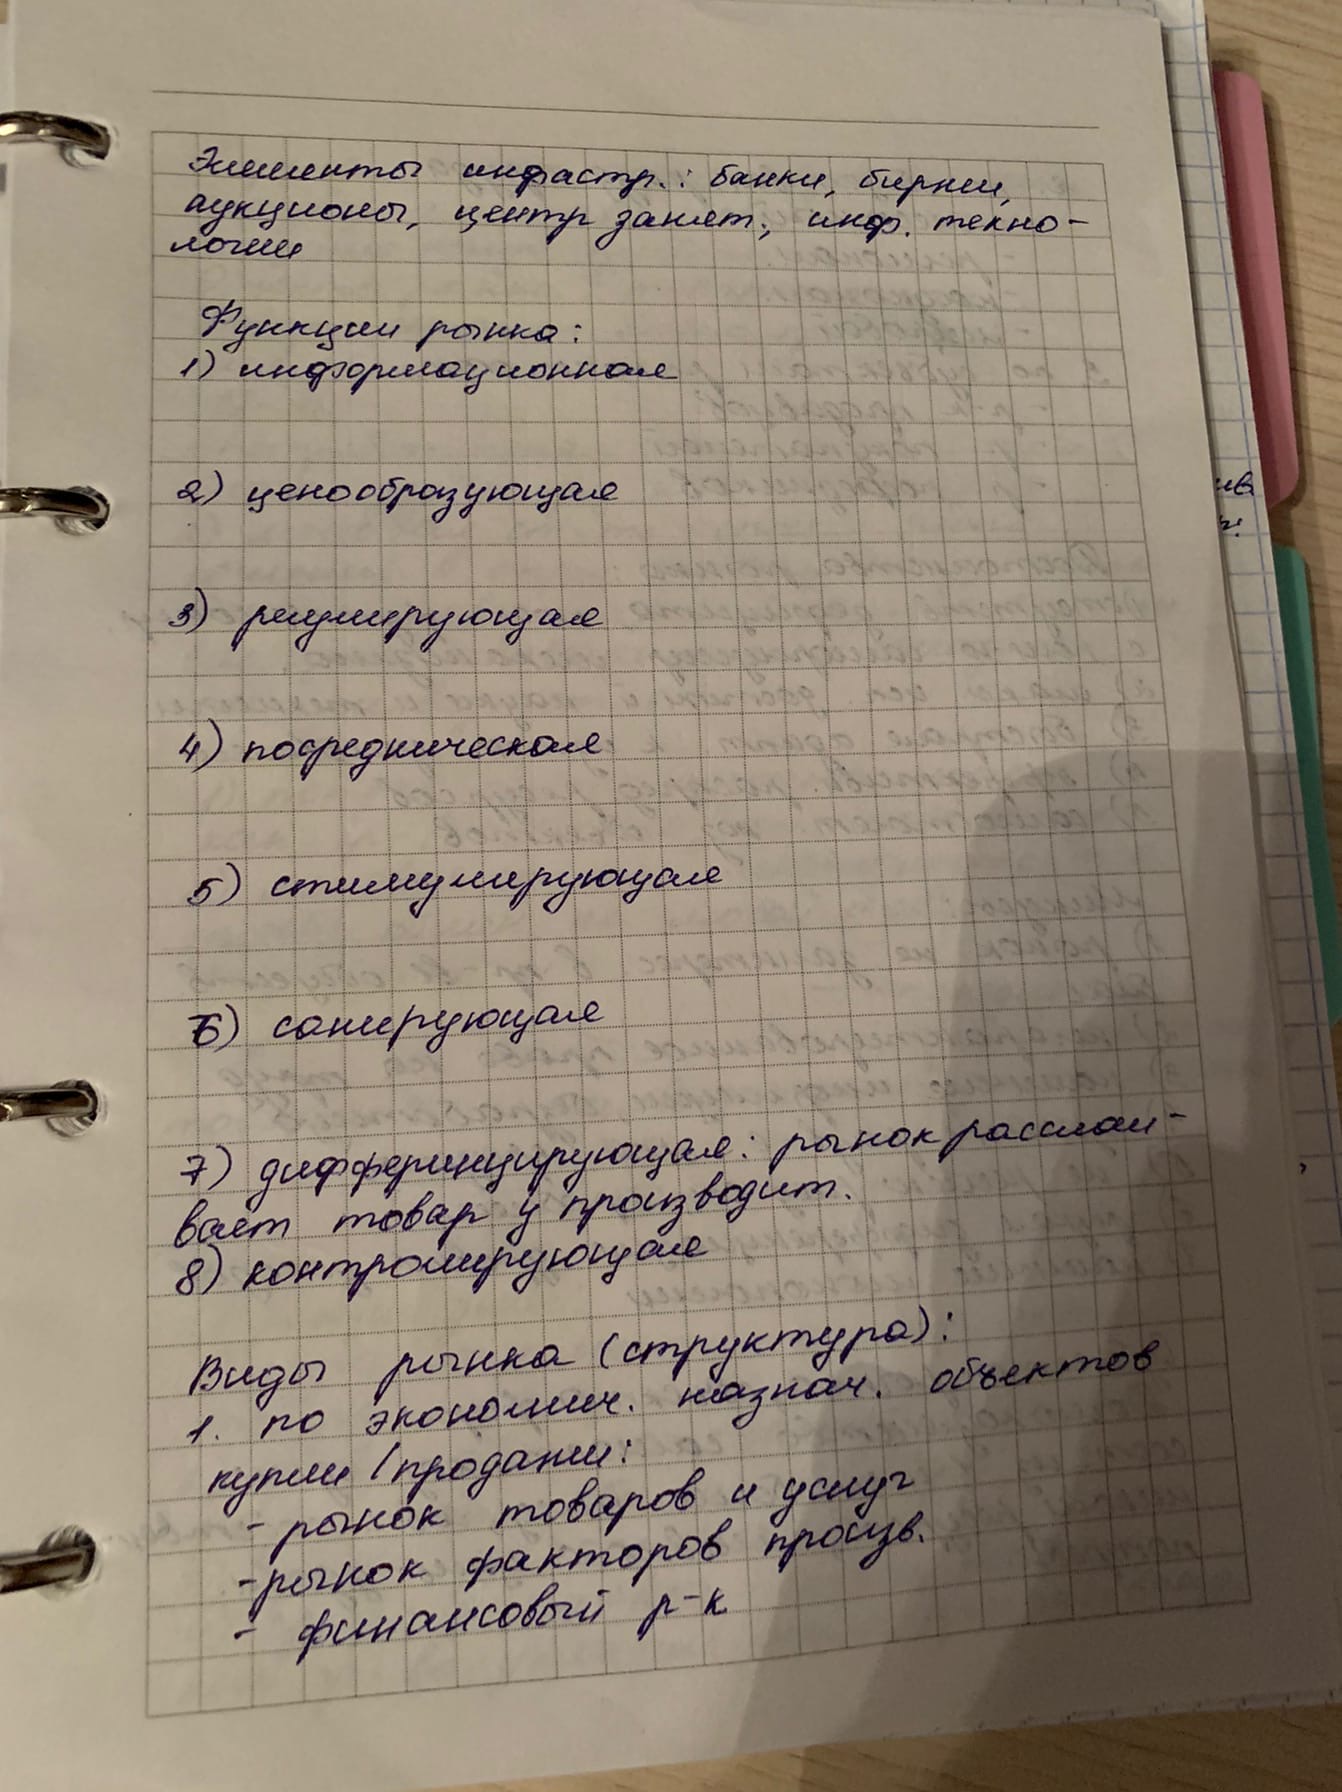 Элементы инфрастр.: банки, биржи,
аукционы, центр занят., инф. техно-
логии
Функции рынка:
1) информационная
2) ценообразующая
3) регулирующая
4) посредническая
5) стимулирующая
6) санирующая
7) дифференцирующая: рынок расслаи-
вает товар у производит.
8) контролирующая
Виды рынка (структура):
1. по экономич. назнач. объектов
купли /продажи:
- рынок товаров и услуг
- рынок факторов произв.
- финансовый р-к